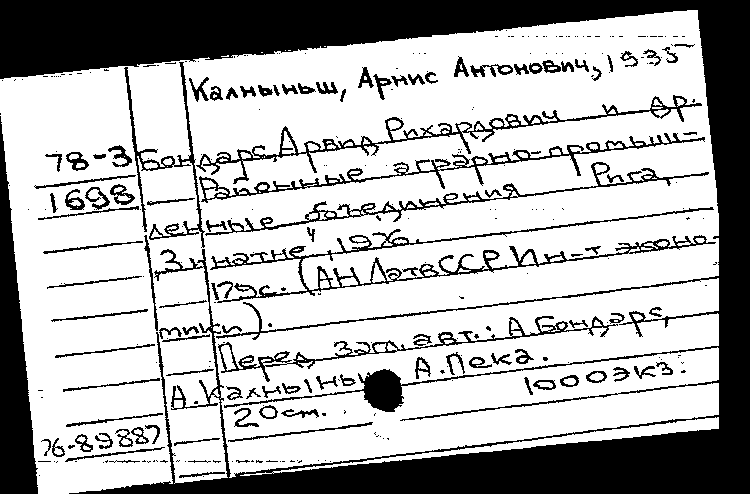 Калныньш, Арнис Антонович, 1935
78-3 Бондарс, Арвид Рихардович и др.
1698 Районные аграрно-промыш-
ленные объединения Рига,
"Зинатне", 1976.
179с. (АН ЛатвССР. Ин-т эконо-
мики).
Перед загл. авт.: А. Бондарс,
А. Калныньш, А. Пека.
20см. 1000экз.
76-89887